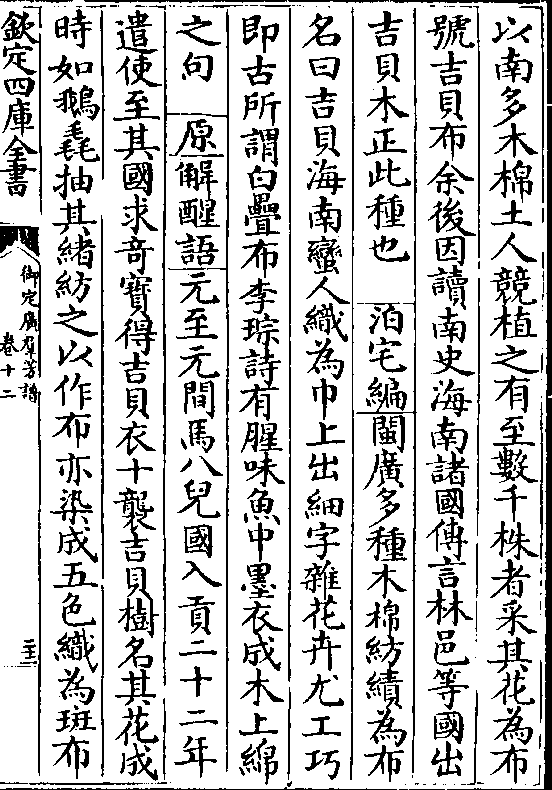 以南多木棉土人競植之有至數千株者采其花為布
號吉貝布余後因讀南史海南諸國傳言林邑等國出
吉貝木正此種也 泊宅編閩廣多種木棉紡績為布
名曰吉貝海南蠻人織為巾上出細字雜花卉尤工巧
即古所謂白疊布李琮詩有腥味魚中墨衣成木上綿
之句 原解酲語元至元間馬八兒國入貢二十二年
遣使至其國求奇寶得吉貝衣十襲吉貝樹名其花成
時如鵝毳抽其緒紡之以作布亦染成五色織為斑布
欽定四庫全書
御定廣羣芳譜
卷十二